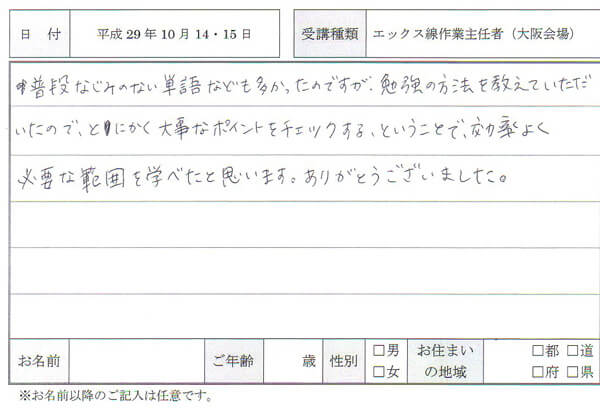 日付 平成29年10月14・15日 受講種類 エックス線作業主任者（大阪会場）
普段なじみのない単語なども多かったのですが、勉強の方法を教えていただ
いたので、とにかく大事なポイントをチェックする、ということで、効率よく
必要な範囲を学べたと思います。ありがとうございました。
お名前 ご年齢 歳 性別 □男 □女 お住まいの地域 □都 □道 □府 □県
※お名前以降のご記入は任意です。